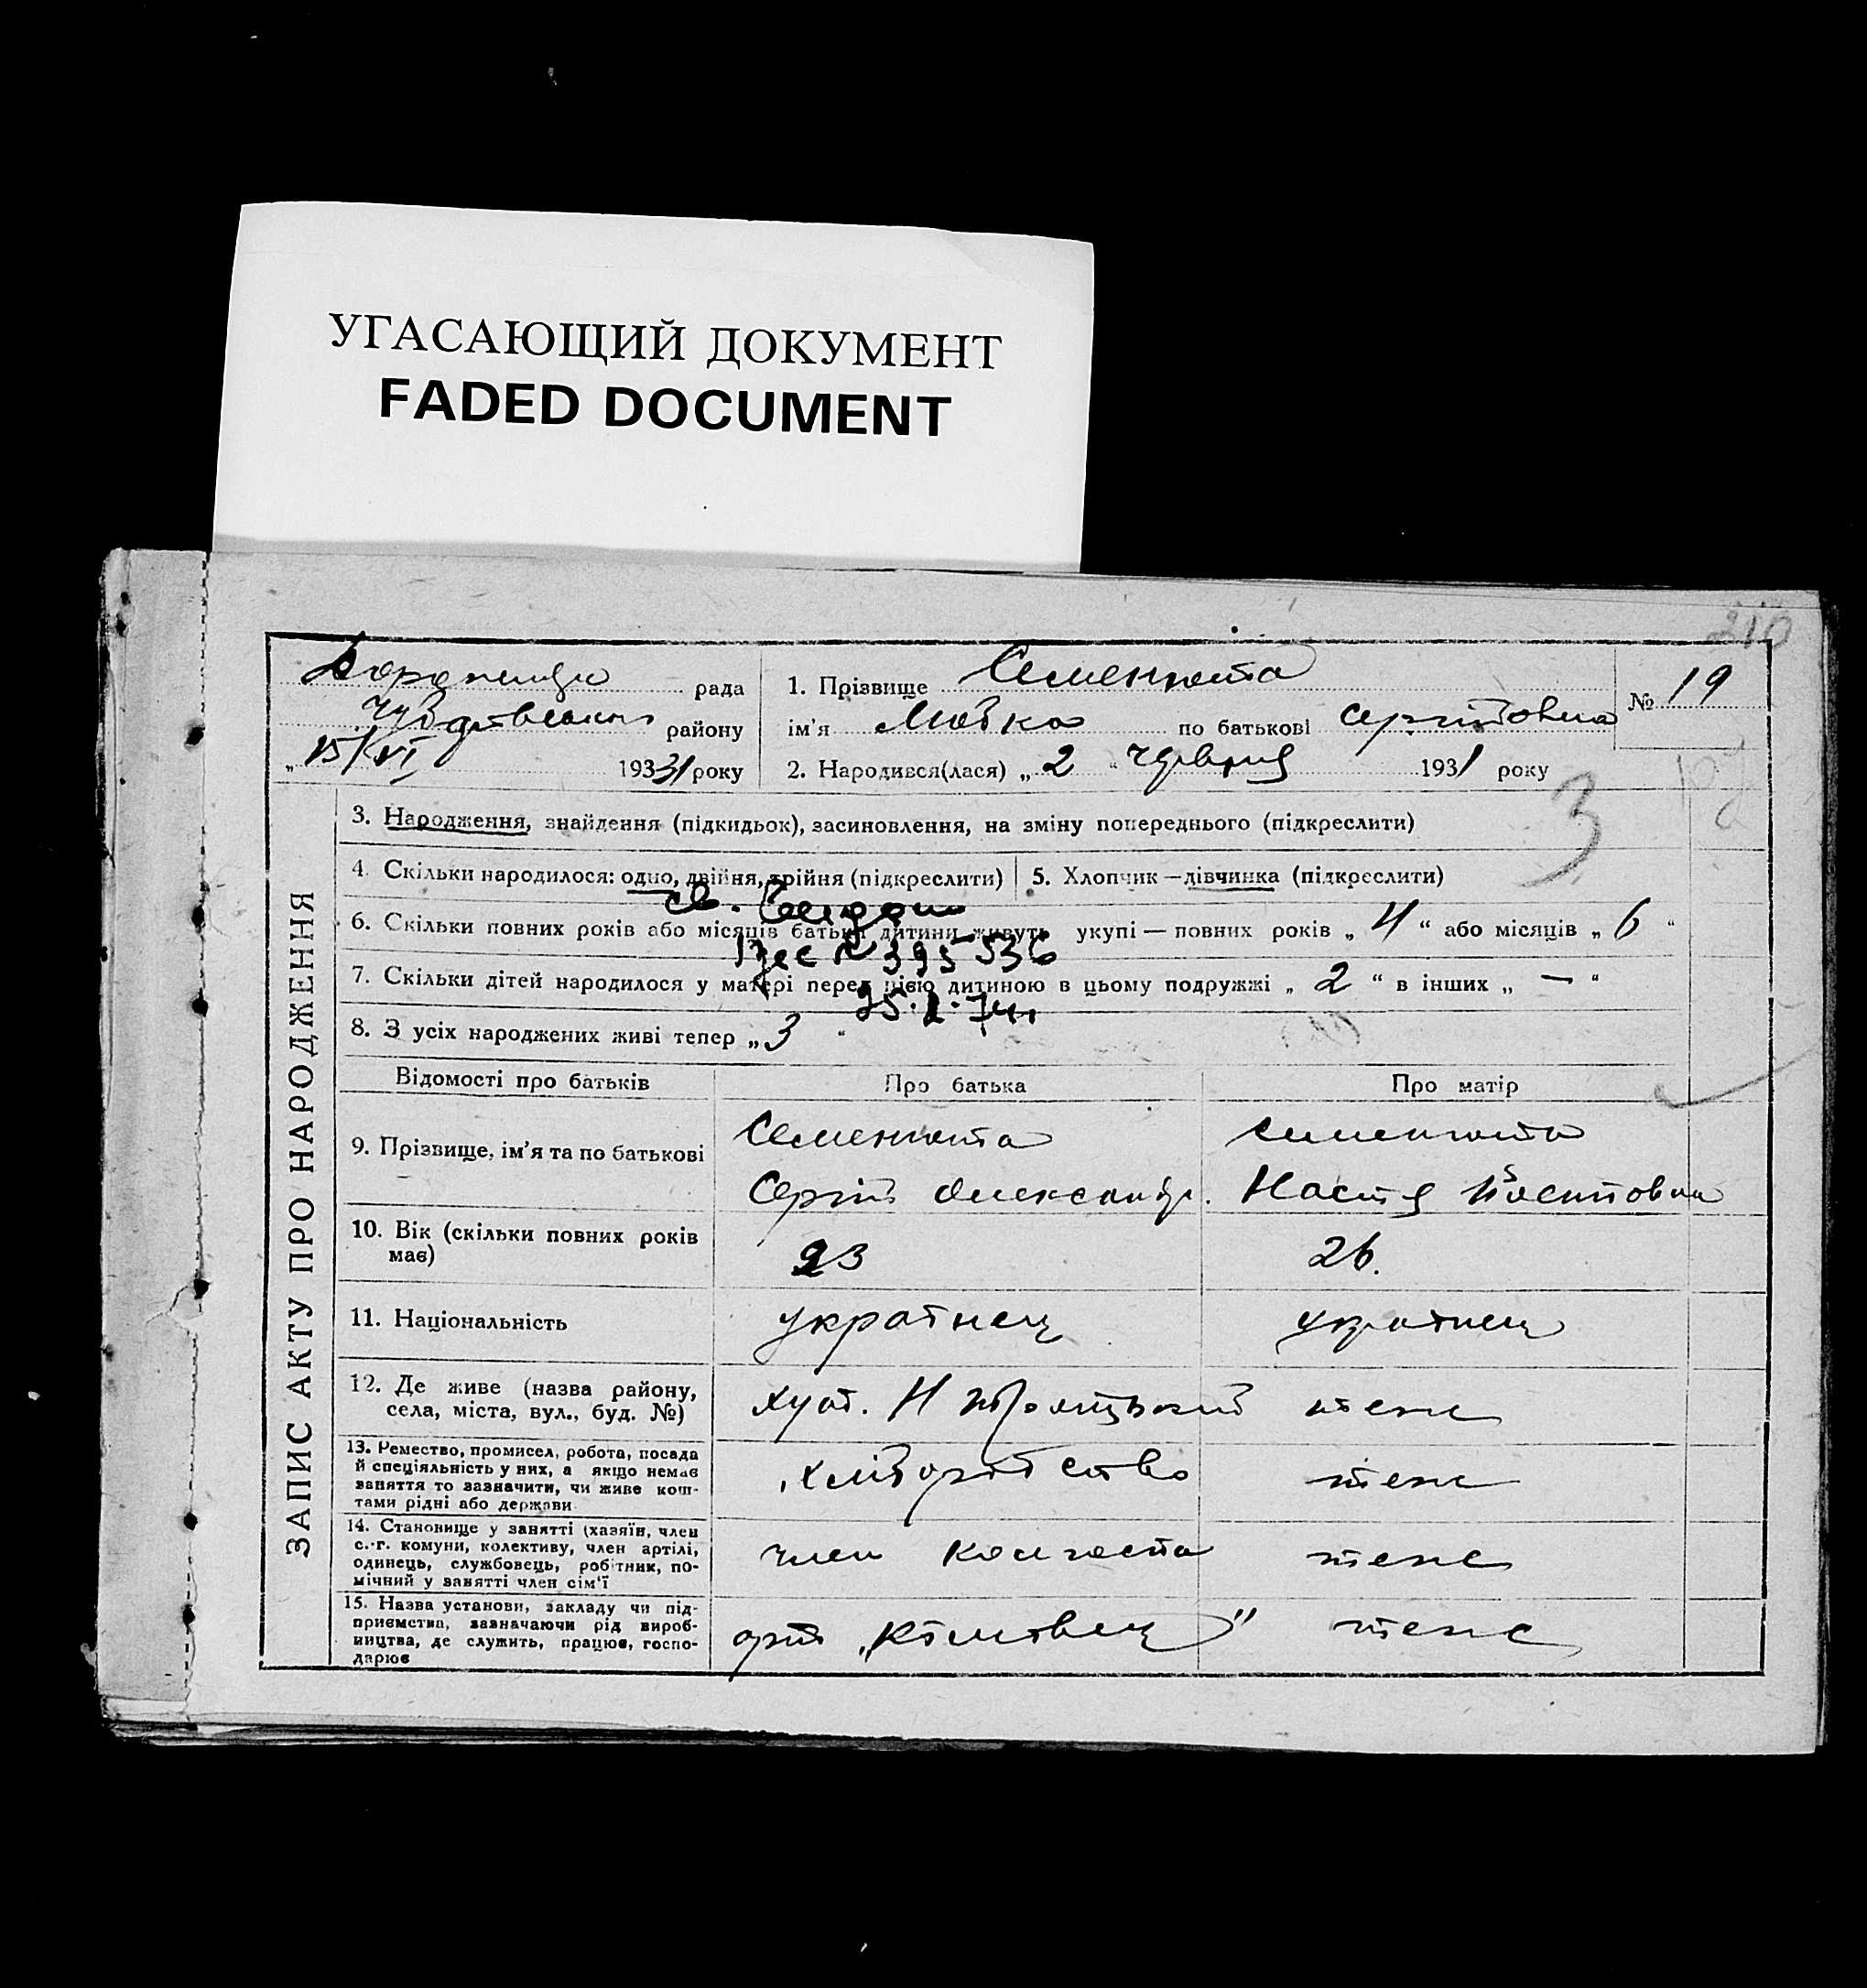 УГАСАЮЩИЙ ДОКУМЕНТ
FADED DOCUMENT
210
рада
району
„15/VI 1931 року
1. Прізвище Семенюта
ім'я Любка по батькові Сергіївна
2. Народився(лася) „2“ червня 1931 року
№ 19
3
ЗАПИС АКТУ ПРО НАРОДЖЕННЯ
3. Народження, знайдення (підкидьок), засиновлення, на зміну попереднього (підкреслити)
4. Скільки народилося: одно, двійня, трійня (підкреслити)
5. Хлопчик — дівчинка (підкреслити)
6. Скільки повних років або місяців батьки дитини живуть укупі — повних років „4“ або місяців „6“
№ 395536
7. Скільки дітей народилося у матері перед цією дитиною в цьому подружжі „2“ в інших „—“
8. З усіх народжених живі тепер „3“
Відомості про батьків Про батька Про матір
9. Прізвище, ім'я та по батькові
Семенюта
Сергій Олександр.
Семенюта
Настя
10. Вік (скільки повних років
має)
23
26.
11. Національність
українец
українец
12. Де живе (назва району,
села, міста, вул., буд. №)
хут.
теж
13. Ремество, промисел, робота, посада
й спеціяльність у них, а якщо немає
заняття то зазначити, чи живе кош-
тами рідні або держави
хліборобство
теж
14. Становище у занятті (хазяїн, член
с.-г. комуни, колективу, член артілі,
одинець, службовець, робітник, по-
мічний у занятті член сім'ї
член
теж
15. Назва установи, закладу чи під-
приємства, зазначаючи рід вироб-
ництва, де служить, працює, госпо-
дарює
теж